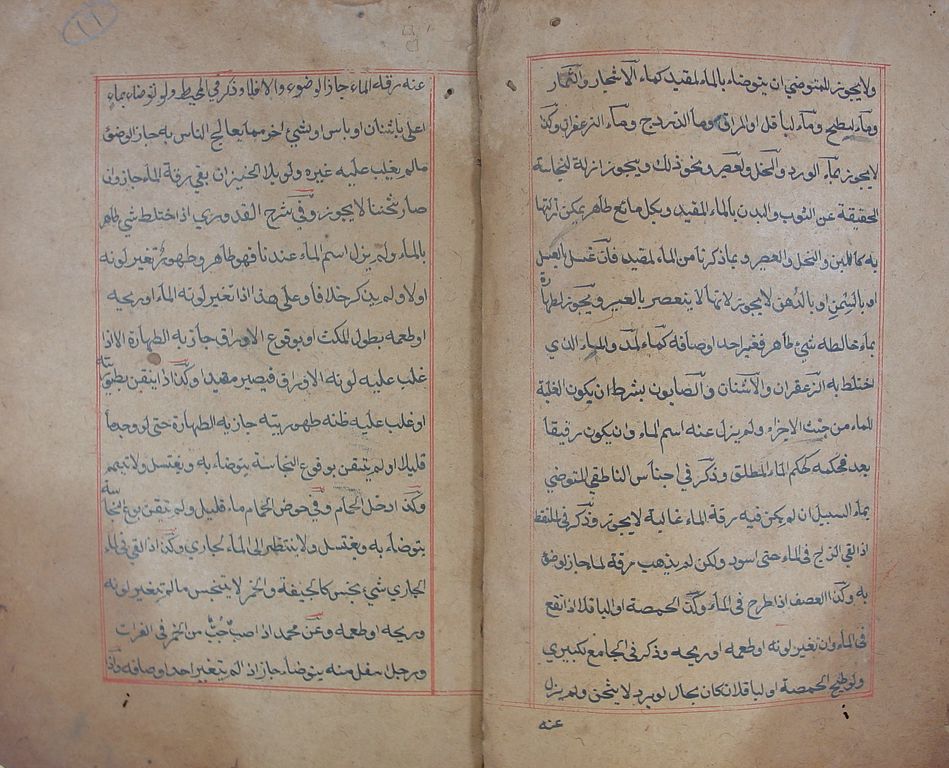 ولا يجوز للمتوضي ان يتوضاء بالماء المقيد كماء الاشجار والثمار
وماء البطيخ وماء الباقلا والمراق وماء الزردج وماء الزعفران وكذا
لا يجوز بماء الورد والخل والعصير ونحو ذلك ويجوز ازالة النجاسة
الحقيقة عن الثوب والبدن بالماء المقيد وبكل مائع طاهر يمكن ازالتها
به كاللبن والخل والعصير وبما ذكرنا من الماء المقيد فان غسل بالعسل
او بالسمن او بالدهن لا يجوز لانها لا ينعصر بالعصر ويجوز الطهارة
بماء خالطه شيء طاهر فغير احد اوصافه كماء المد والماء الذي
اختلط به الزعفران والاشنان والصابون بشرط ان يكون الغلبة
للماء من حيث الاجزاء ولم يزل عنه اسم الماء وان يكون رقيقا
بعد فحكمه كحكم الماء المطلق وذكر في اجناس الناطفي المتوضي
بماء السيل ان لم يكن فيه رقة الماء غالبة لا يجوز وذكر في الملتقط
اذا القي الزاج في الماء حتى اسود ولكن لم يذهب رقة الماء جاز الوضوء
به وكذا العفص اذا طرح في الماء وكذا الحمصة او الباقلا اذا نقع
في الماء وان تغير لونه او طعمه او ريحه وذكر في الجامع الكبيري
ولو طبخ الحمصة او الباقلا ان كان بحال لو برد لا يثخن ولم يزل
عنه
١١
عنه رقة الماء جاز الوضوء والا فلا وذكر في المحيط ولو توضاء بماء
اغلى باشنان او باس او بشيء اخر مما يعالج الناس به جاز الوضوء
مالم يغلب عليه غيره ولو بلا الخبز ان بقي رقة الماء جاز وان
صار ثخنا لا يجوز وفي شرح القدوري اذا اختلط شي طاهر
بالماء ولم يزل اسم الماء عندنا فهو طاهر وطهور تغير لونه
اولا ولم يذكر خلافا وعلى هذا اذا تغير لونه الماء او ريحه
او طعمه بطول المكث او بوقوع الاوراق جاز به الطهارة الا اذا
غلب عليه لونه الاوراق فيصير مقيدا وكذا اذا تيقن بطهوريته
او غلب عليه ظنه طهوريته جاز به الطهارة حتى لو وجد ماء
قليلا ولم يتيقن بوقوع النجاسة يتوضاء به ويغتسل ولا يتيمم
وكذا اذا دخل الحمام وفي حوض الحمام ماء قليل ولم يتيقن بوقوع النجاسة
يتوضاء به ويغتسل ولا ينتظر الى الماء الجاري وكذا اذا القي في الماء
الجاري شي نجس كالجيفة والخمر لا يتنجس مالم يتغير لونه
وريحه او طعمه وعن محمد اذا اصب حُبٌّ من الخمر في الفرات
ورجل اسفل منه يتوضاء جاز اذا لم يتغير احد اوصافه واذا